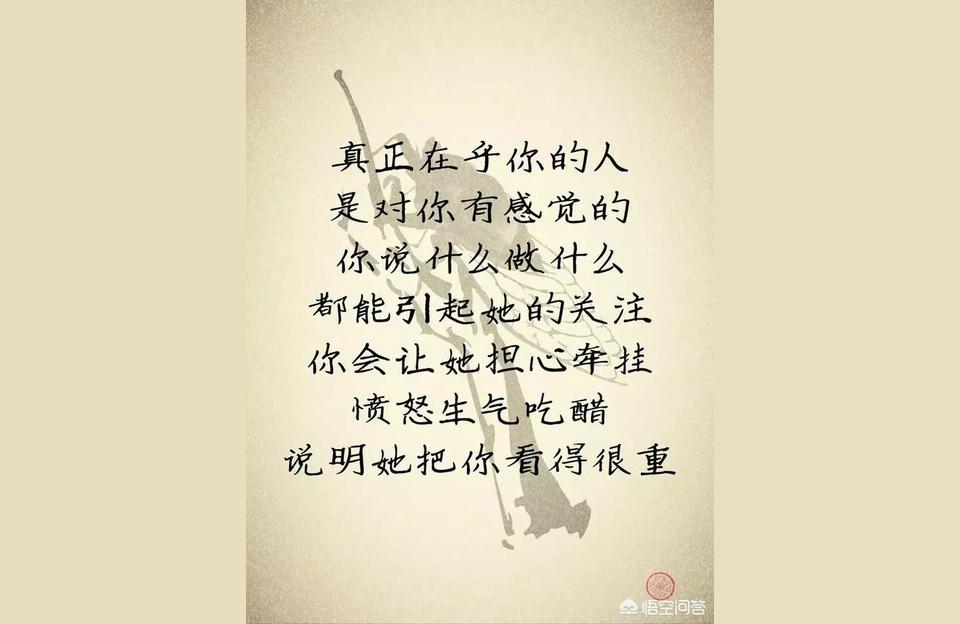 真正在乎你的人
是对你有感觉的
你说什么做什么
都能引起她的关注
你会让她担心牵挂
愤怒生气吃醋
说明她把你看得很重
悟空问答